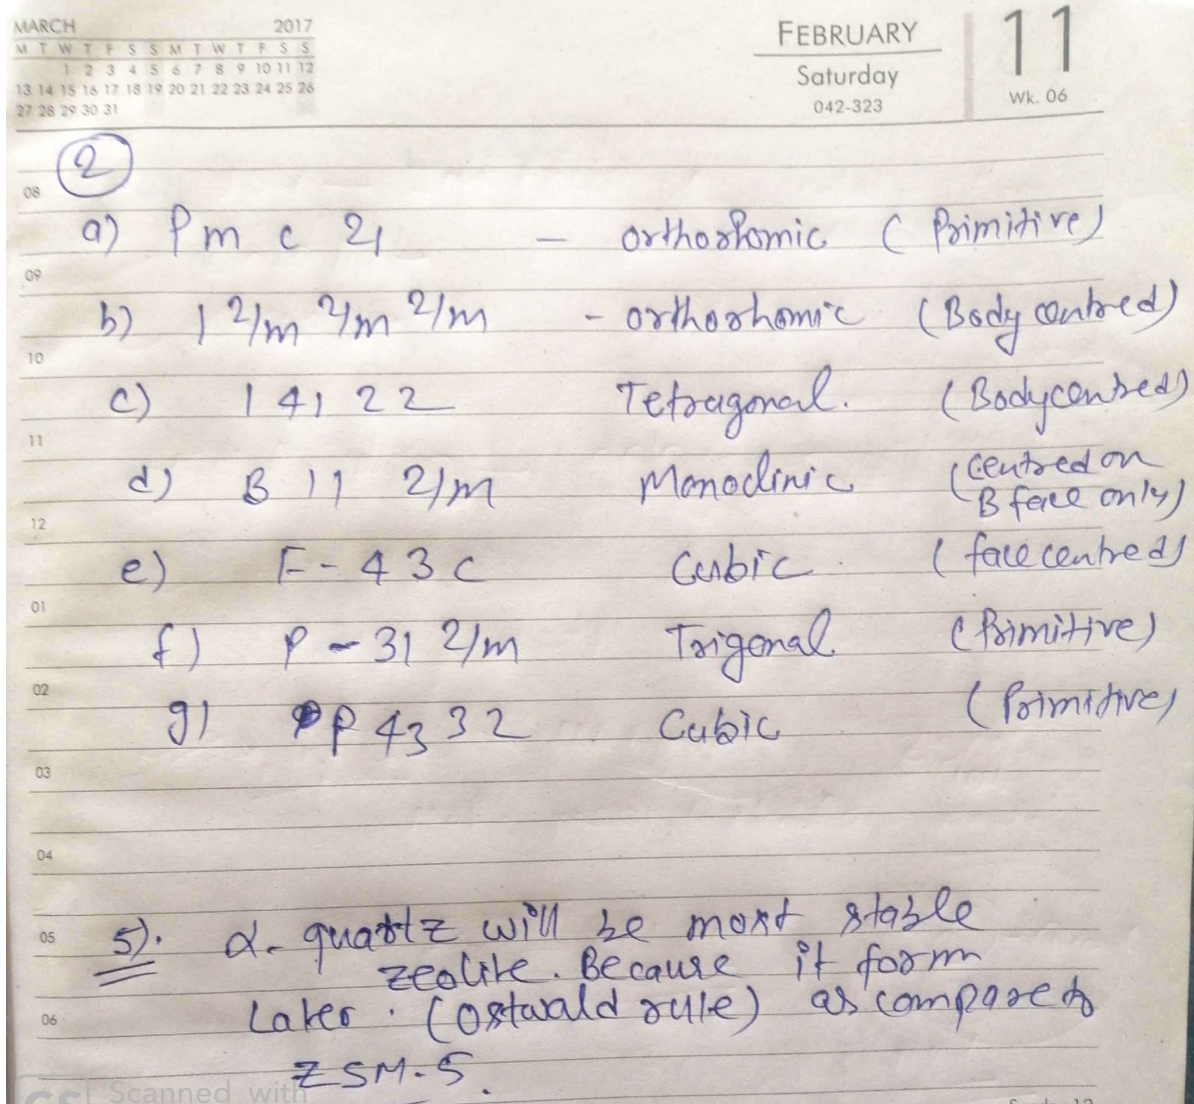 MARCH 2017
M T W T F S S M T W T F S S
1 2 3 4 5 6 7 8 9 10 11 12
13 14 15 16 17 18 19 20 21 22 23 24 25 26
27 28 29 30 31
FEBRUARY
Saturday
042-323
11
Wk. 06
2
08
a) P m c 21 - orthorhomic ( Primitive)
09
b) I 2/m 2/m 2/m - orthorhomic (Body centred)
10
c) I 41 2 2 Tetragonal. (Bodycentred)
11
d) B 11 2/m Monoclinic (Centred on
B face only)
12
e) F - 4 3 c Cubic ( face centred)
01
f) P - 31 2/m Trigonal (Primitive)
02
g) P 43 3 2 Cubic (Primitive)
03
04
05 5). α- quartz will be most stable
zeolite. Because it form
06 Later. (Ostwald rule) as compare to
ZSM-5.
CS Scanned with